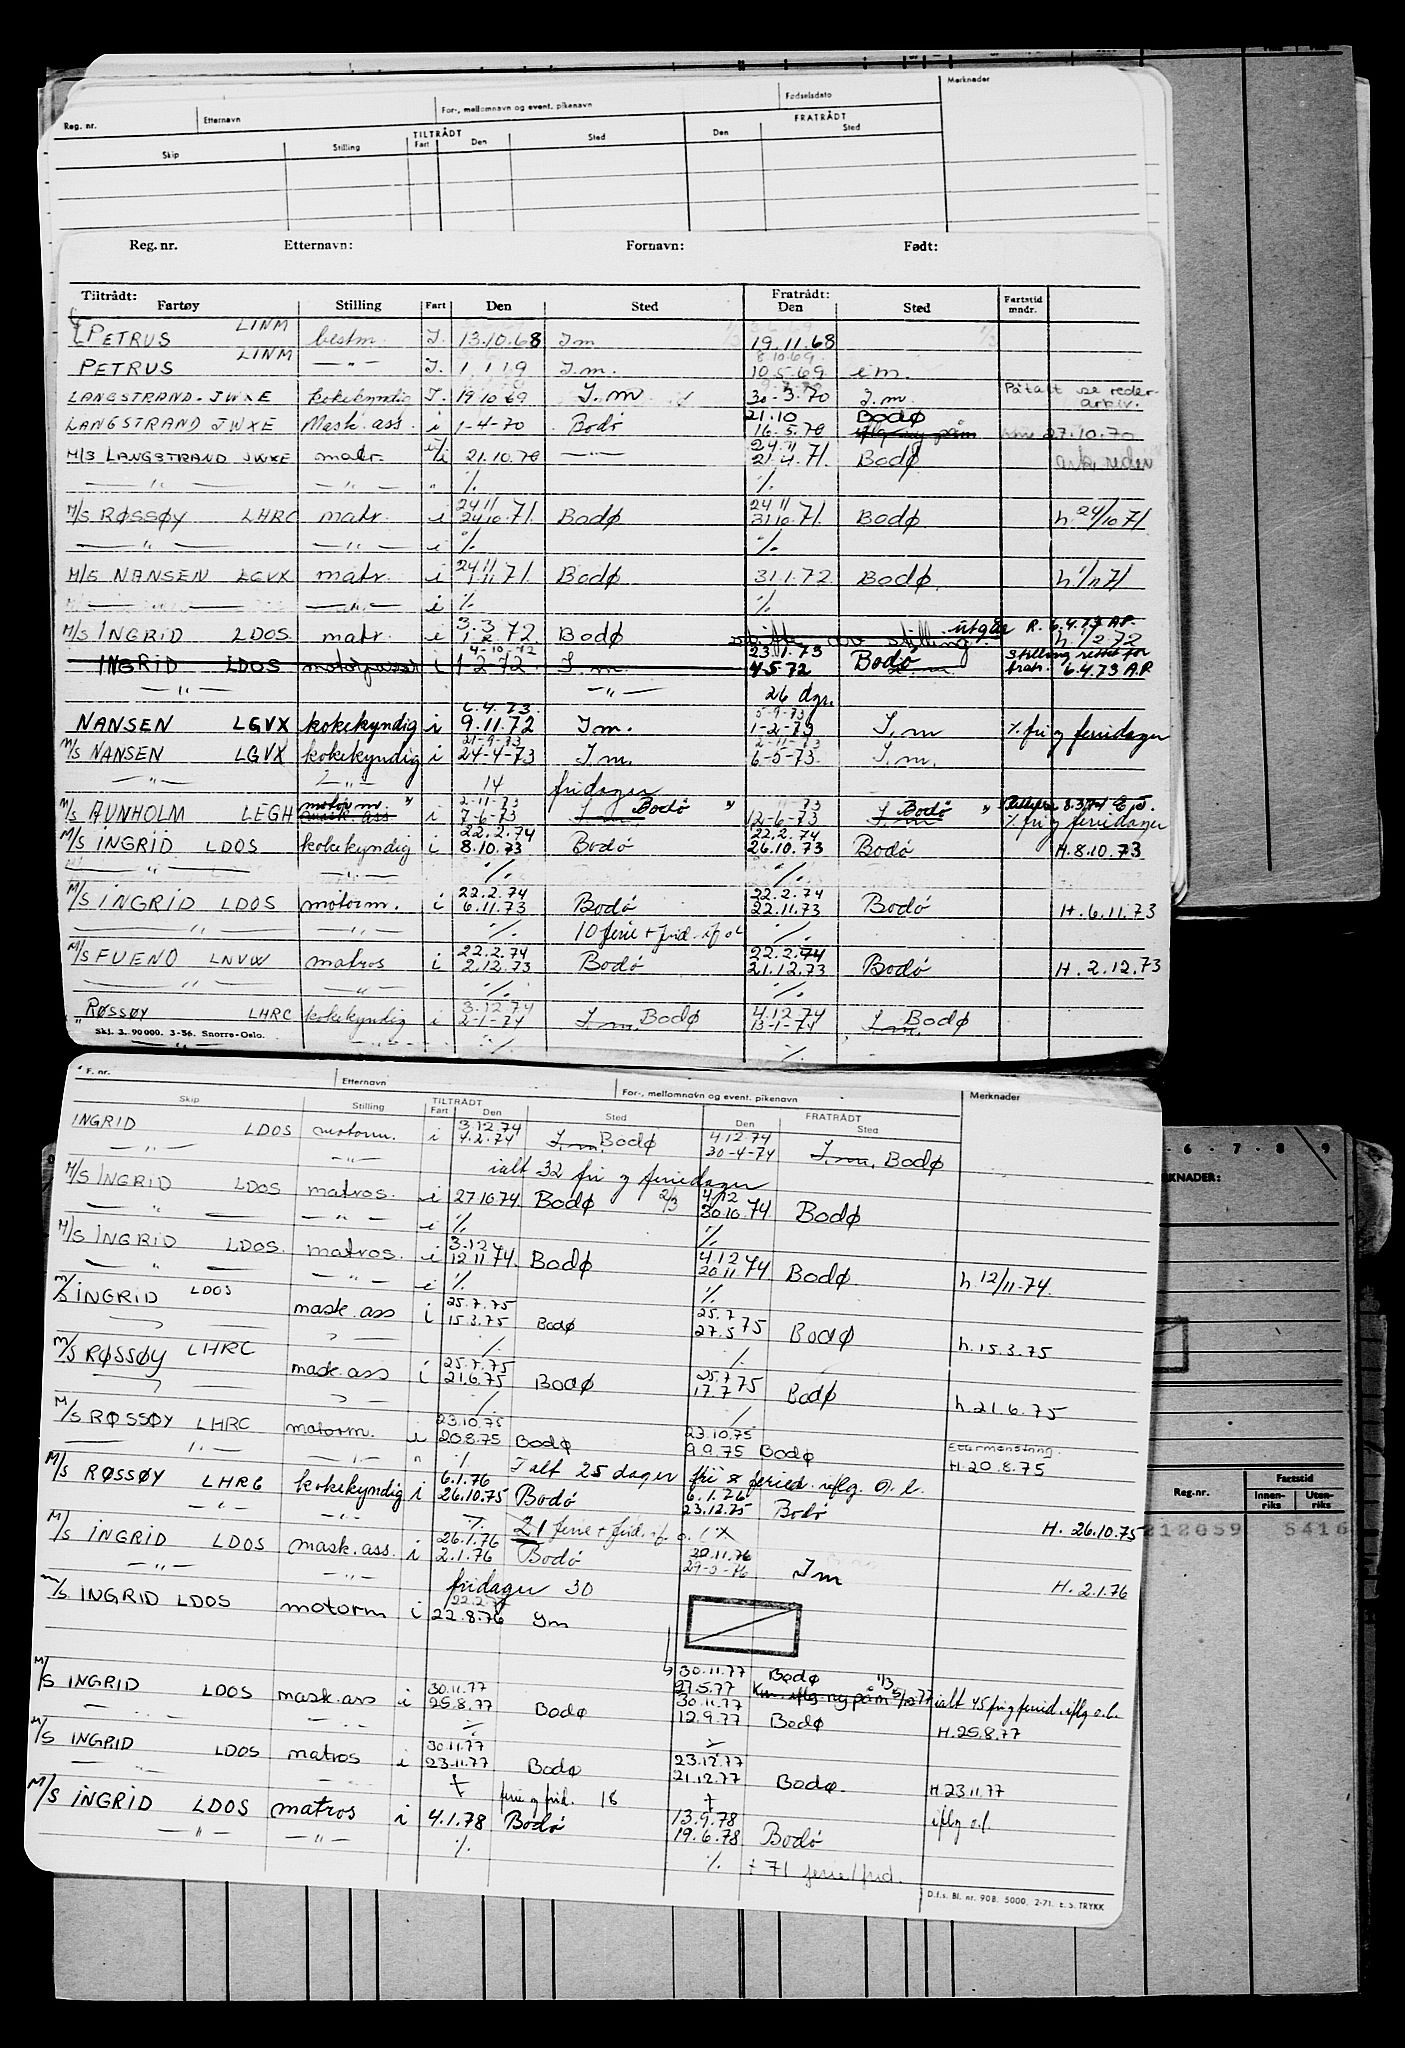 Reg. nr. Etternavn For-, mellomnavn og event. pikenavn Fødselsdato Merknader
TILTRÅDT FRATRÅDT
Skip Stilling Fart Den Sted Den Sted
Reg. nr. Etternavn: Fornavn: Født:
Tiltrådt: Fratrådt:
Fartøy Stilling Fart Den Sted Den Sted Fartstid mndr.
PETRUS LINM bestm. I. 13.10.68 I m 19.11.68
8.10.69
PETRUS LINM —"— I. 1.1.19 I.m. 10.5.69 i m.
LANGSTRAND. JWXE kokekyndig I. 19 10 69 I.m 30-3.70 I.m. Påtalt se reder-
arkiv.
21.10 Bodø
LANGSTRAND JWXE Mask. ass. i 1-4-70 Bodö 16.5.70 iflg ny påm 27.10.70
24.11
M/S LANGSTRAND JWXE matr. i/i 21.10.70 —"— 21.4.71. Bodø ark. reder
—"— —"— " % %
24 11 24 11
M/S RØSSØY LHRC matr. i 24 10.71. Bodø 31 10.71. Bodø h. 24/10 71
—"— —"— i % %
24 11
M/S NANSEN LGVX matr. i 1.11.71 Bodø 31.1.72 Bodø h 1/11 71
—"— —"— i % %
3.3.72 utgår R. 6.4.73 A.P.
M/S INGRID LDOS matr. i 1.2.72. Bodø h. 1/2 72
4-10-72 23.1.73 Stilling rettet for
INGRID LDOS motorpasser i 1-2-72 I.m. 4.5.72 Bodø fratr. 6.4.73 A.P.
—"— —"— 26 dgr.
6.4.73. 5-9-73
NANSEN LGVX kokekyndig i 9.11.72 I m. 1-2-73 I.m % fri og feriedager
21-9-73 2-11-73
M/S NANSEN LGVX kokekyndig i 24-4-73 I m. 6-5-73. I.m.
—"— —"— 14 fridager
motorm. " 2-11-73 Bodö " Bodö "
M/S AUNHOLM LEGH mask. ass i 7-6-73 I m 12-6-73 I.m % fri og feriedager
22.2.74 22.2.74
M/S INGRID LDOS kokekyndig i 8.10.73 Bodö 26.10.73 Bodö H. 8.10.73
—"— —"— % %
22.2.74 22.2.74
M/S INGRID LDOS motorm. i 6.11.73 Bodö 22.11.73 Bodö H. 6.11.73
—"— —"— % 10 ferie + frid. if o l %
22.2.74 22.2.74
M/S FUENO LNVW matros i 2.12.73 Bodö 21.12.73 Bodö H. 2.12.73
—"— —"— % %
3.12.74 4.12.74
RØSSØY LHRC kokekyndig i 2-1-74 I m Bodø 13-1-74 I.m. Bodø
Skj. 3. 90 000. 3-56. Snorre-Oslo.
—"— % %
F. nr. Etternavn For-, mellomnavn og event. pikenavn Merknader
TILTRÅDT FRATRÅDT
Skip Stilling Fart Den Sted Den Sted
3.12.74 4.12.74
INGRID LDOS motorm. i 4.2.74 I.m. Bodø 30-4-74 I.m. Bodø
—"— —"— ialt 32 fri og feriedager
M/S INGRID LDOS matros. i 27 10 74. Bodø 2/3 4/12 30.10.74 Bodø
—"— —"— i % %
3.12 4 12
M/S INGRID LDOS. matros. i 12 11 74. Bodø 20 11 74 Bodø h 12/11-74.
—"— —"— i % %
25.7.75 25.7
M/S INGRID LDOS mask. ass i 15.3.75 Bodø 27.5 75 Bodø h. 15.3.75
—"— —"— % %
25.7.75 25.7
M/S RØSSØY LHRC mask. ass i 21.6.75 Bodø 17.7 75 Bodø h. 21.6.75
—"— —"— % %
23.10.75 23.10.75
M/S RØSSØY LHRC motorm. i 20.8.75 Bodø 9.9.75 Bodø Ettermønstring.
H. 20.8.75
—"— —"— " % I alt 25 dager fri & feried. iflg. o.l.
6.1.76 6.1.76
M/S RØSSØY LHRC kokekyndig i 26.10.75 Bodö 23.12.75 Bodö H. 26.10.75
—"— —"— % 21 ferie + frid. if. o. l %
26.1.76 20.11.76
M/S INGRID LDOS mask. ass. i 2.1.76 Bodö I m H. 2.1.76
—"— —"— fridager 30
M/S INGRID LDOS motorm i 22.8.76 Im
30.11.77 Bodø 1/3
27.5.77 iflg ny påm ialt 45 fri og feried. iflg o.l.
30.11.77 30.11.77
M/S INGRID LDOS mask. ass i 25.8.77 Bodø 12.9.77 Bodø H. 25.8.77
—"— —"— % %
30.11.77 23.12.77
M/S INGRID LDOS matros i 23.11.77 Bodø 21.12.77 Bodø. H 23.11.77
—"— —"— ferie og frid. 18 iflg o.l.
13.9.78
M/S INGRID LDOS matros i 4.1.78 Bodö 19.6.78 Bodö
—"— —"— % % + 71 ferie/frid.
D.f.s. Bl. nr. 908. 5000. 2-71. E. S. TRYKK
6 7 8 9
KNADER:
Reg.-nr. Fartstid
Innenriks Utenriks
212059 5416